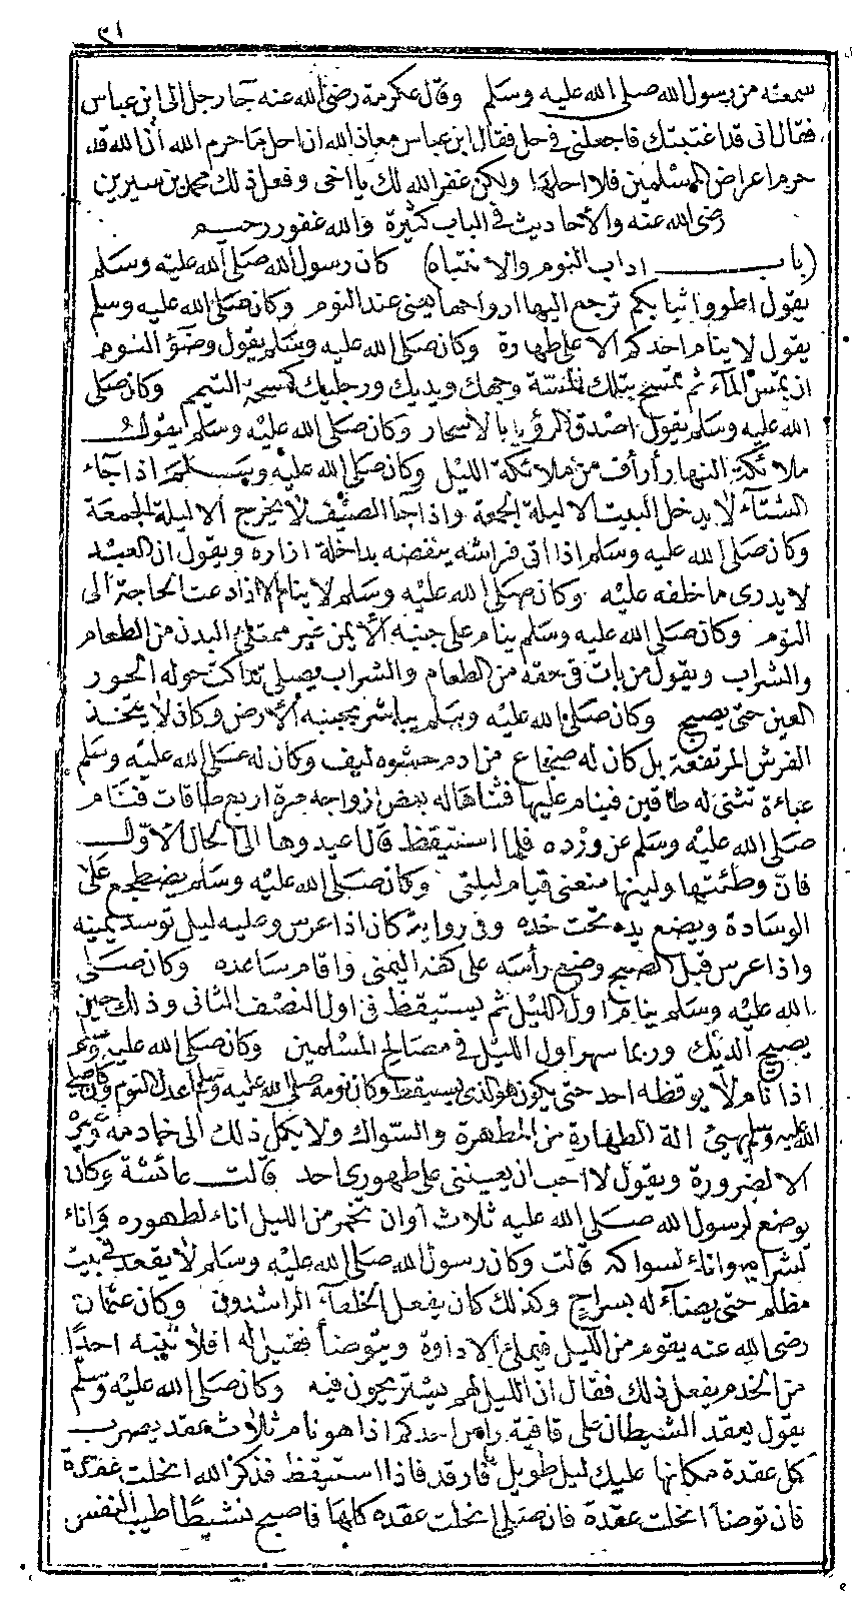 ٣١
سمعته من رسول الله صلى الله عليه وسلم وقال عكرمة رضى الله عنه جآ رجل الى ابن عباس
فقال انى قد اغتبتك فاجعلنى فى حل فقال ابن عباس معاذ الله ان احل ما حرم الله ان الله قد
حرم اعراض المسلمين فلا احلها ولكن غفر الله لك يا اخى وفعل ذلك محمد بن سيرين
رضى الله عنه والأحاديث فى الباب كثيرة والله غفور رحيم
(باب اداب النوم والانتباه) كان رسول الله صلى الله عليه وسلم
يقول اطووا ثيابكم ترجع اليها ارواحها يعنى عند النوم وكان صلى الله عليه وسلم
يقول لا ينام احدكم الا على طهارة وكان صلى الله عليه وسلم يقول وضؤ النوم
ان تمس المآء ثم تمسح بتلك المسة وجهك ويديك ورجليك كمسحة التيمم وكان صلى
الله عليه وسلم يقول اصدق الرؤيا بالاسحار وكان صلى الله عليه وسلم يقول
ملائكة النهار أرأف من ملائكة الليل وكان صلى الله عليه وسلم اذا جآء
الشتآء لا يدخل البيت الا ليلة الجمعة واذا جآ الصيف لا يخرج الا ليلة الجمعة
وكان صلى الله عليه وسلم اذا اتى فراشه ينفضه بداخلة ازاره ويقول ان العبد
لا يدرى ما خلفه عليه وكان صلى الله عليه وسلم لا ينام الا اذا دعت الحاجة الى
النوم وكان صلى الله عليه وسلم ينام على جنبه الأيمن غير ممتلئ البدن من الطعام
والشراب ويقول من بات فى خفة من الطعام والشراب يصلى تداكت حوله الحور
العين حتى يصبح وكان صلى الله عليه وسلم يباشر بجنبه الأرض وكان لا يتخذ
الفرش المرتفعة بل كان له ضجاع من ادم حشوه ليف وكان له صلى الله عليه وسلم
عباءة تثنى له طاقين فينام عليها فثناها له بعض ازواجه مرة اربع طاقات فنام
صلى الله عليه وسلم عن ورده فلما استيقظ قال اعيدوها الى الحال الاول
فان وطئتها ولينها منعنى قيام ليلتى وكان صلى الله عليه وسلم يضطجع على
الوسادة ويضع يده تحت خده وفى رواية كان اذا عرس وعليه ليل توسد يمينه
واذا عرس قبل الصبح وضع رأسه على كفه اليمنى واقام ساعده وكان صلى
الله عليه وسلم ينام اول الليل ثم يستيقظ فى اول النصف الثانى وذلك حين
يصيح الديك وربما سهر اول الليل فى مصالح المسلمين وكان صلى الله عليه وسلم
اذا نام لا يوقظه احد حتى يكون هو الذى يستيقظ وكان نومه صلى الله عليه وسلم اعدل النوم وكان صلى
الله عليه وسلم يهيئ الة الطهارة من المطهرة والسواك ولا يكل ذلك الى خادمه
الا لضرورة ويقول لا احب ان يعيننى على طهورى احد قالت عائشة وكان
يوضع لرسول الله صلى الله عليه ثلاث أوان تخمر من الليل اناء لطهوره واناء
لشرابه واناء لسواكه قالت وكان رسول الله صلى الله عليه وسلم لا يقعد فى بيت
مظلم حتى يضآء له بسراج وكذلك كان يفعل الخلفآء الراشدون وكان عثمان
رضى الله عنه يقوم من الليل فيملئ الاداوة ويتوضأ فقيل له افلا تنبه احدا
من الخدم يفعل ذلك فقال ان الليل لهم يستريحون فيه وكان صلى الله عليه وسلم
يقول يعقد الشيطان على قافية راس احدكم اذا هو نام ثلاث عقد يضرب
كل عقدة مكانها عليك ليل طويل فارقد فاذا استيقظ فذكر الله انحلت عقدة
فان توضأ انحلت عقدة فان صلى انحلت عقده كلها فاصبح نشيطا طيب النفس